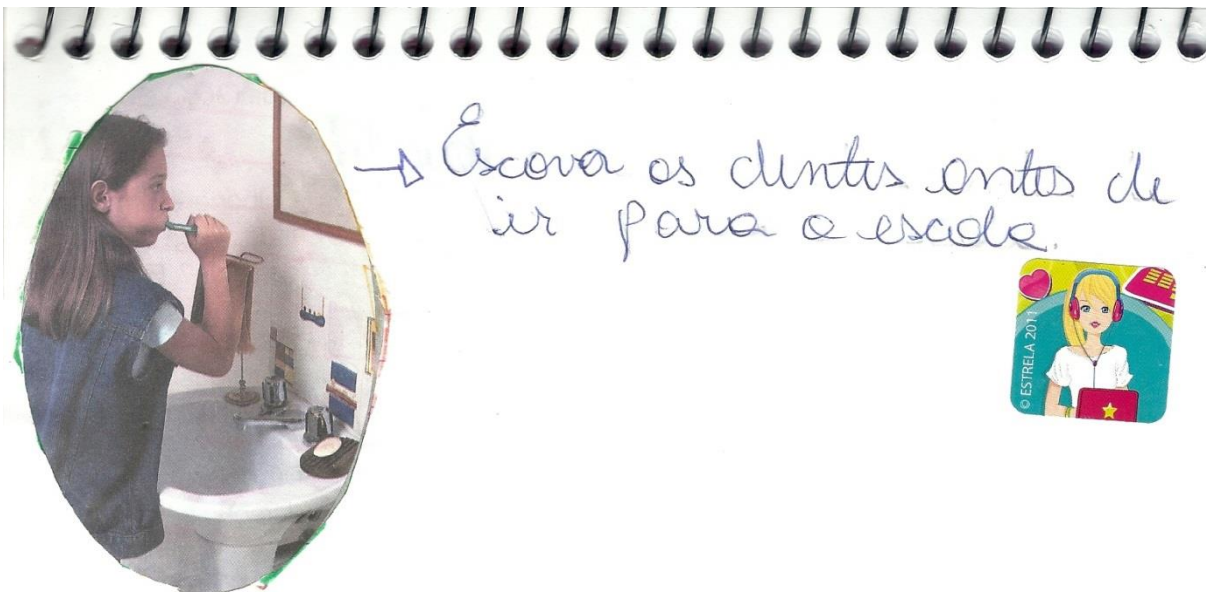 → Escova os dentes antes de
ir para a escola.
© ESTRELA 2011